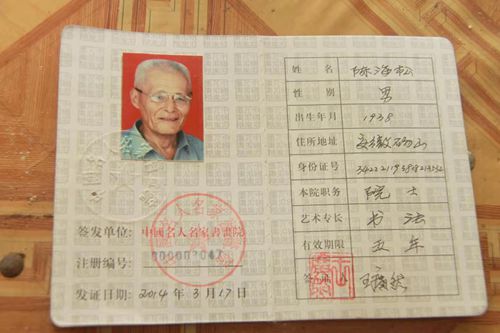 签发单位: 中國名人名家書畫院
注册编号: 000002047
发证日期: 2014 年 3 月 17 日
姓 名 陈海松
性 别 男
出生年月 1938
住所地址 安徽砀山
身份证号
本院职务 院士
艺术专长 书法
有效期限 五年